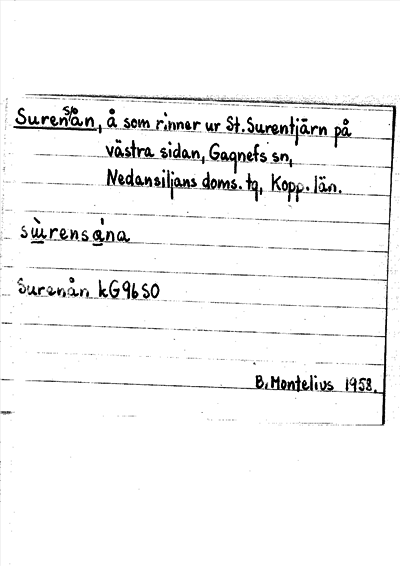 Surens/oån, å som rinner ur St. Surentjärn på
västra sidan, Gagnefs sn,
Nedansiljans doms. tg, Kopp. län.
sùrensána
Surenån kG96SO
B. Montelius 1958.